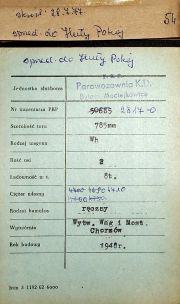 skreśl. 28.7.67
54
sprzed. do Huty Pokój
sprzed. do Huty Pokój
P.K.P.
Jednostka służbowa Parowozownia K.D.
Bytom Maciejkowice
Nr inwentarza PKP 50685 2817-0
Szerokość toru 785mm
Rodzaj wagonu Wh
Ilość osi 2
Ładowność w t. 8t.
Ciężar własny
Rodzaj hamulca ręczny
Wytwórnia Wytw. Wag i Most.
Chorzów
Rok budowy 1948r.